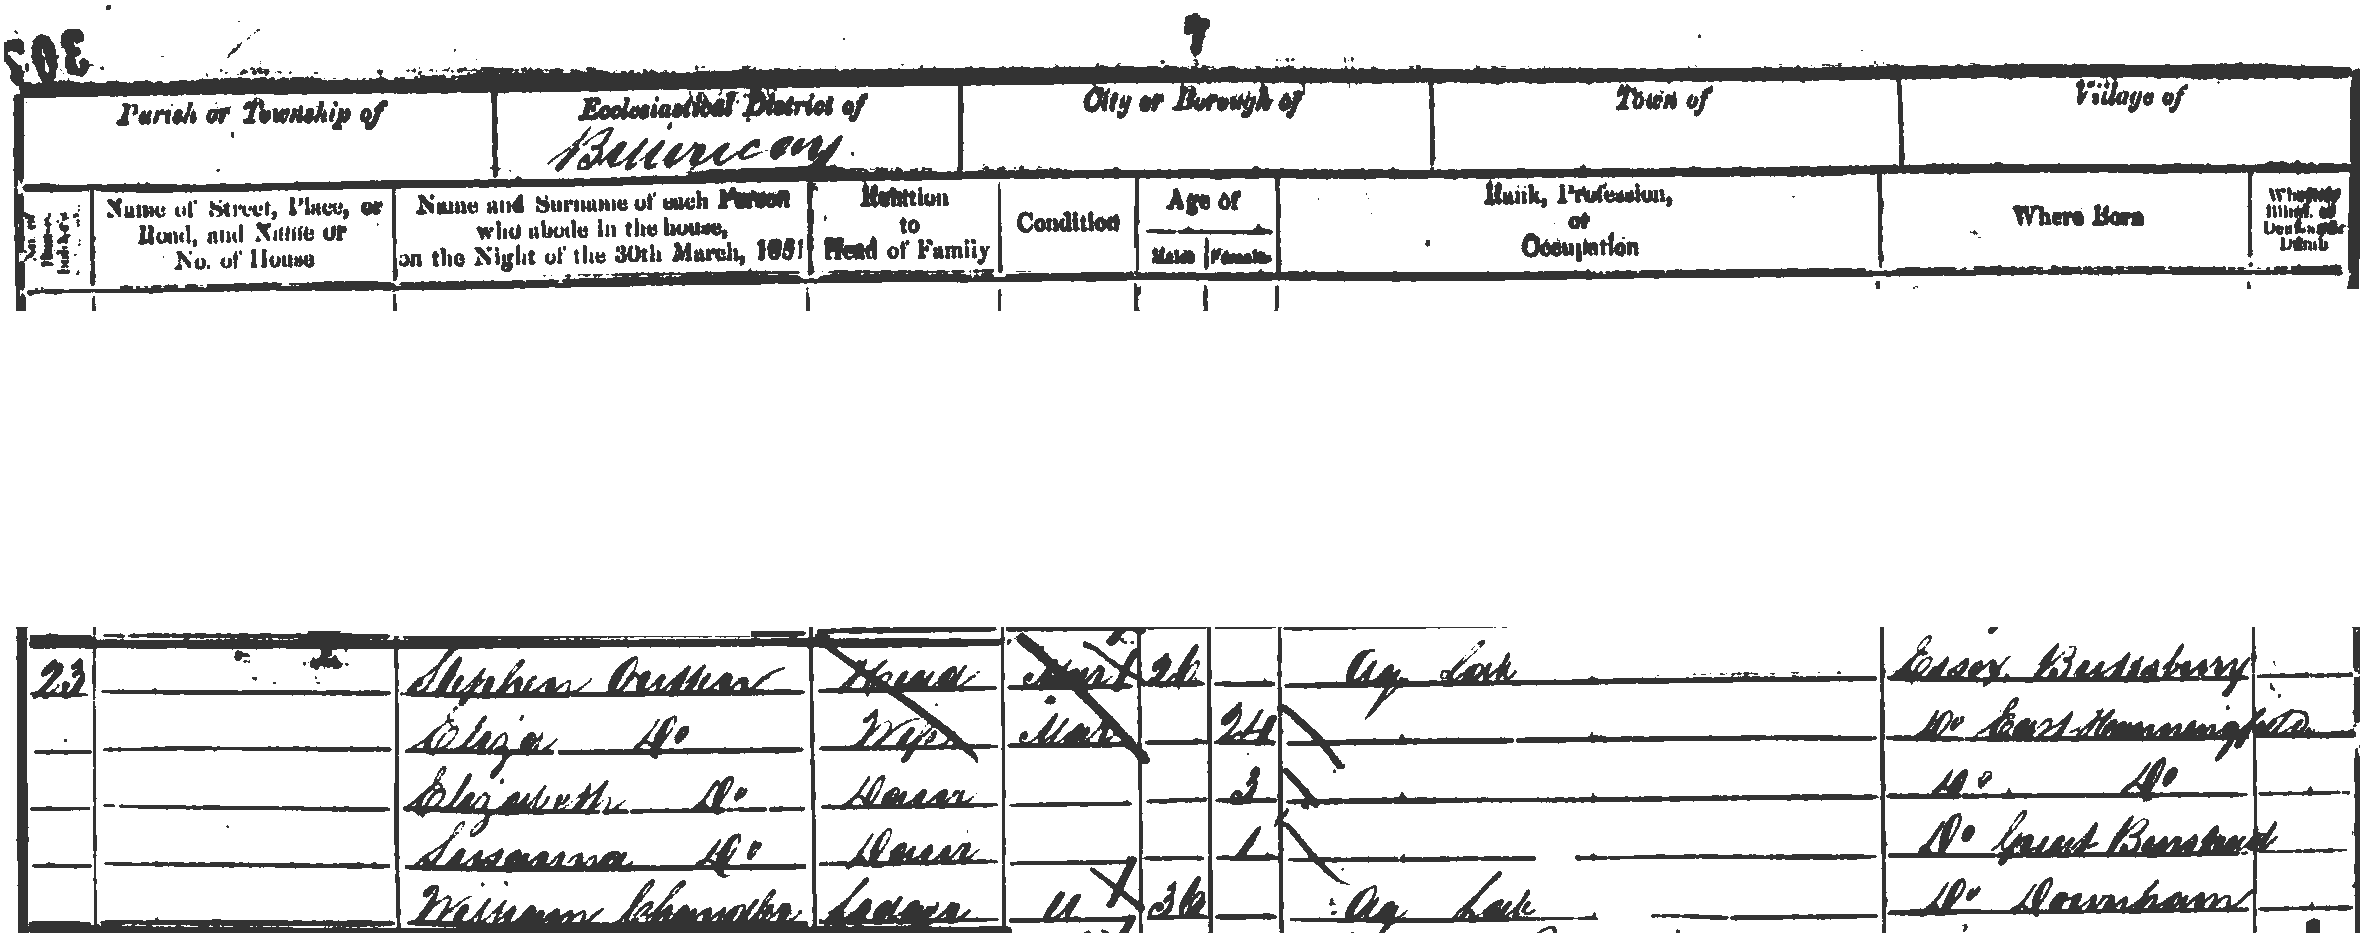 303
Parish or Township of Ecclesiastical District of City or Borough of Town of Village of
Billericay
Name of Street, Place, or Road, and Name or No. of House
Name and Surname of each Person who abode in the house, on the Night of the 30th March, 1851
Relation to Head of Family
Condition
Age of
Males Females
Rank, Profession, or Occupation
Where Born
Whether Blind, or Deaf-and-Dumb
23 Stephen Head Mar 26 Ag Lab Essex Buttsbury
Eliza Do Wife Mar 24 Do East Hanningfield
Elizabeth Do Daur 3 Do Do
Susanna Do Daur 1 Do Great Burstead
William Chandler Lodger U 36 Ag Lab Do Downham